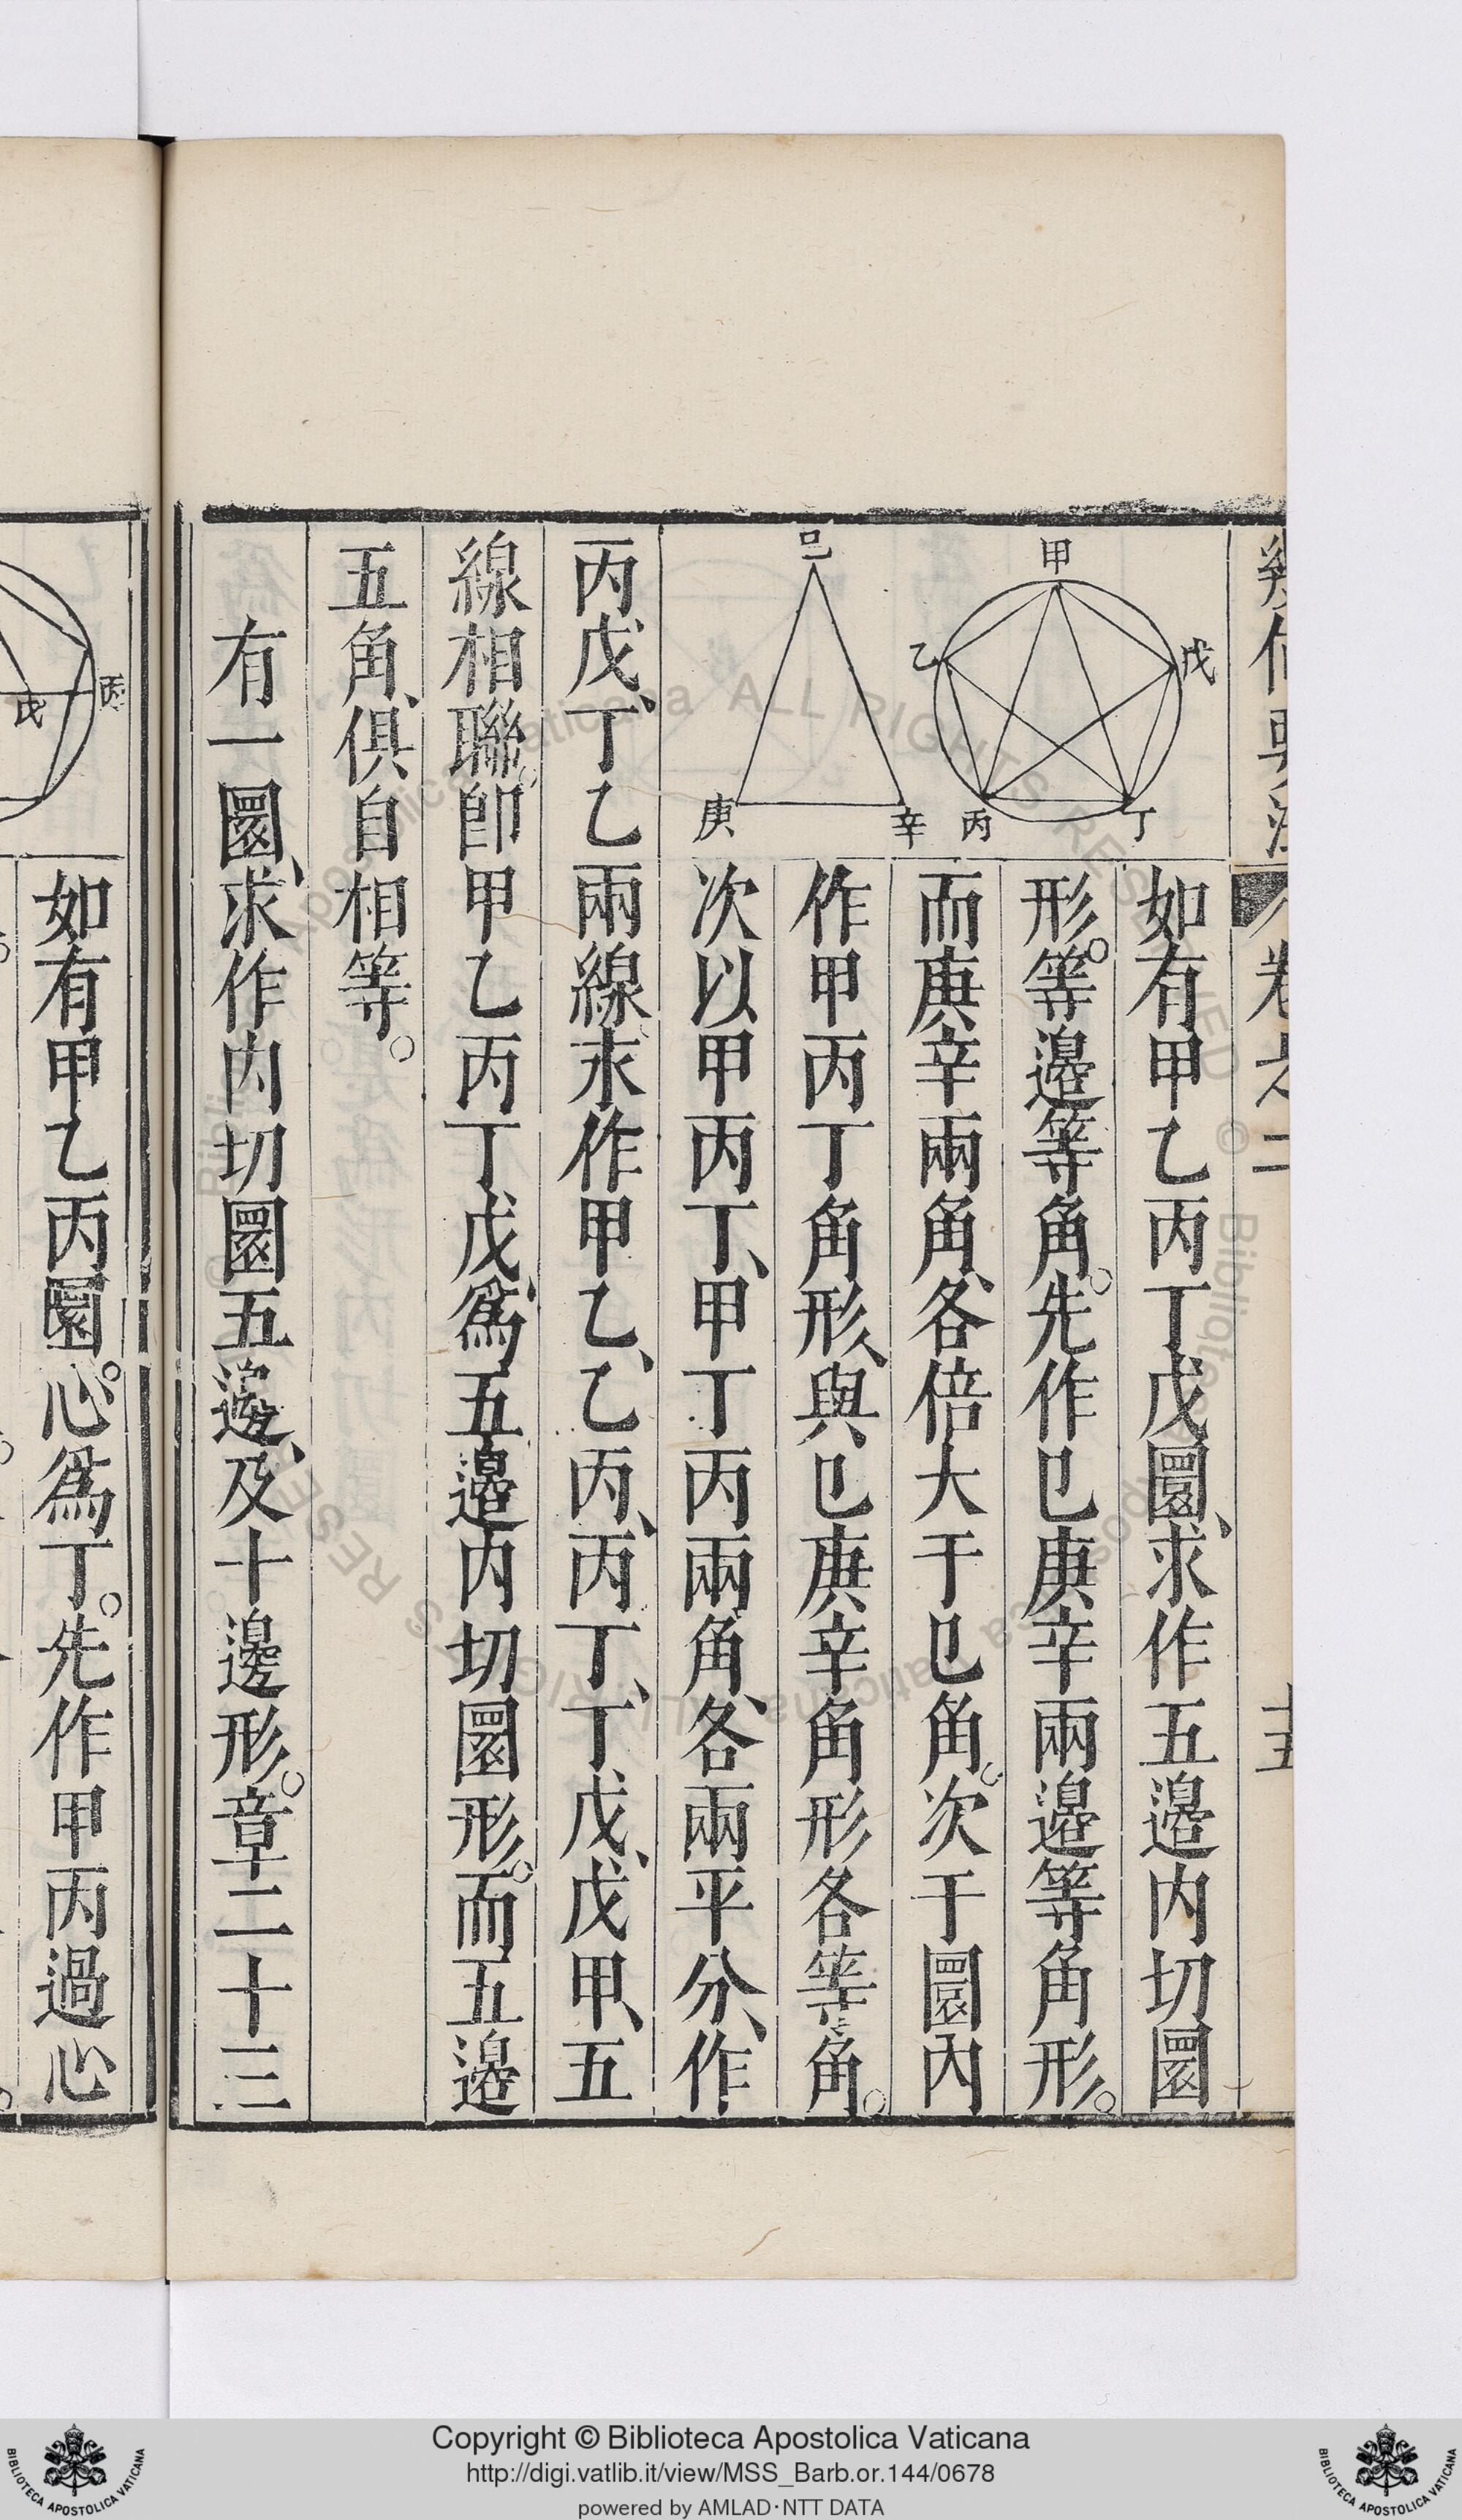 甲
戊
乙
丁
丙
己
庚
辛
如有甲乙丙丁戊圜、求作五邊內切圜
形。等邊等角。先作己庚辛兩邊等角形。
而庚辛兩角、各倍大于己角。次于圜內
作甲丙丁角形、與己庚辛角形各等角。
次以甲丙丁、甲丁丙兩角、各兩平分、作
丙戊、丁乙兩線。末作甲乙、乙丙、丙丁、丁戊、戊甲、五
線相聯。卽甲乙丙丁戊、爲五邊內切圜形。而五邊
五角、俱自相等。
有一圜、求作內切圜五邊、及十邊形。章二十三
丙
戊
如有甲乙丙圜。心爲丁。先作甲丙過心
Copyright © Biblioteca Apostolica Vaticana
http://digi.vatlib.it/view/MSS_Barb.or.144/0678
powered by AMLAD·NTT DATA
BIBLIOTECA APOSTOLICA VATICANA
BIBLIOTECA APOSTOLICA VATICANA